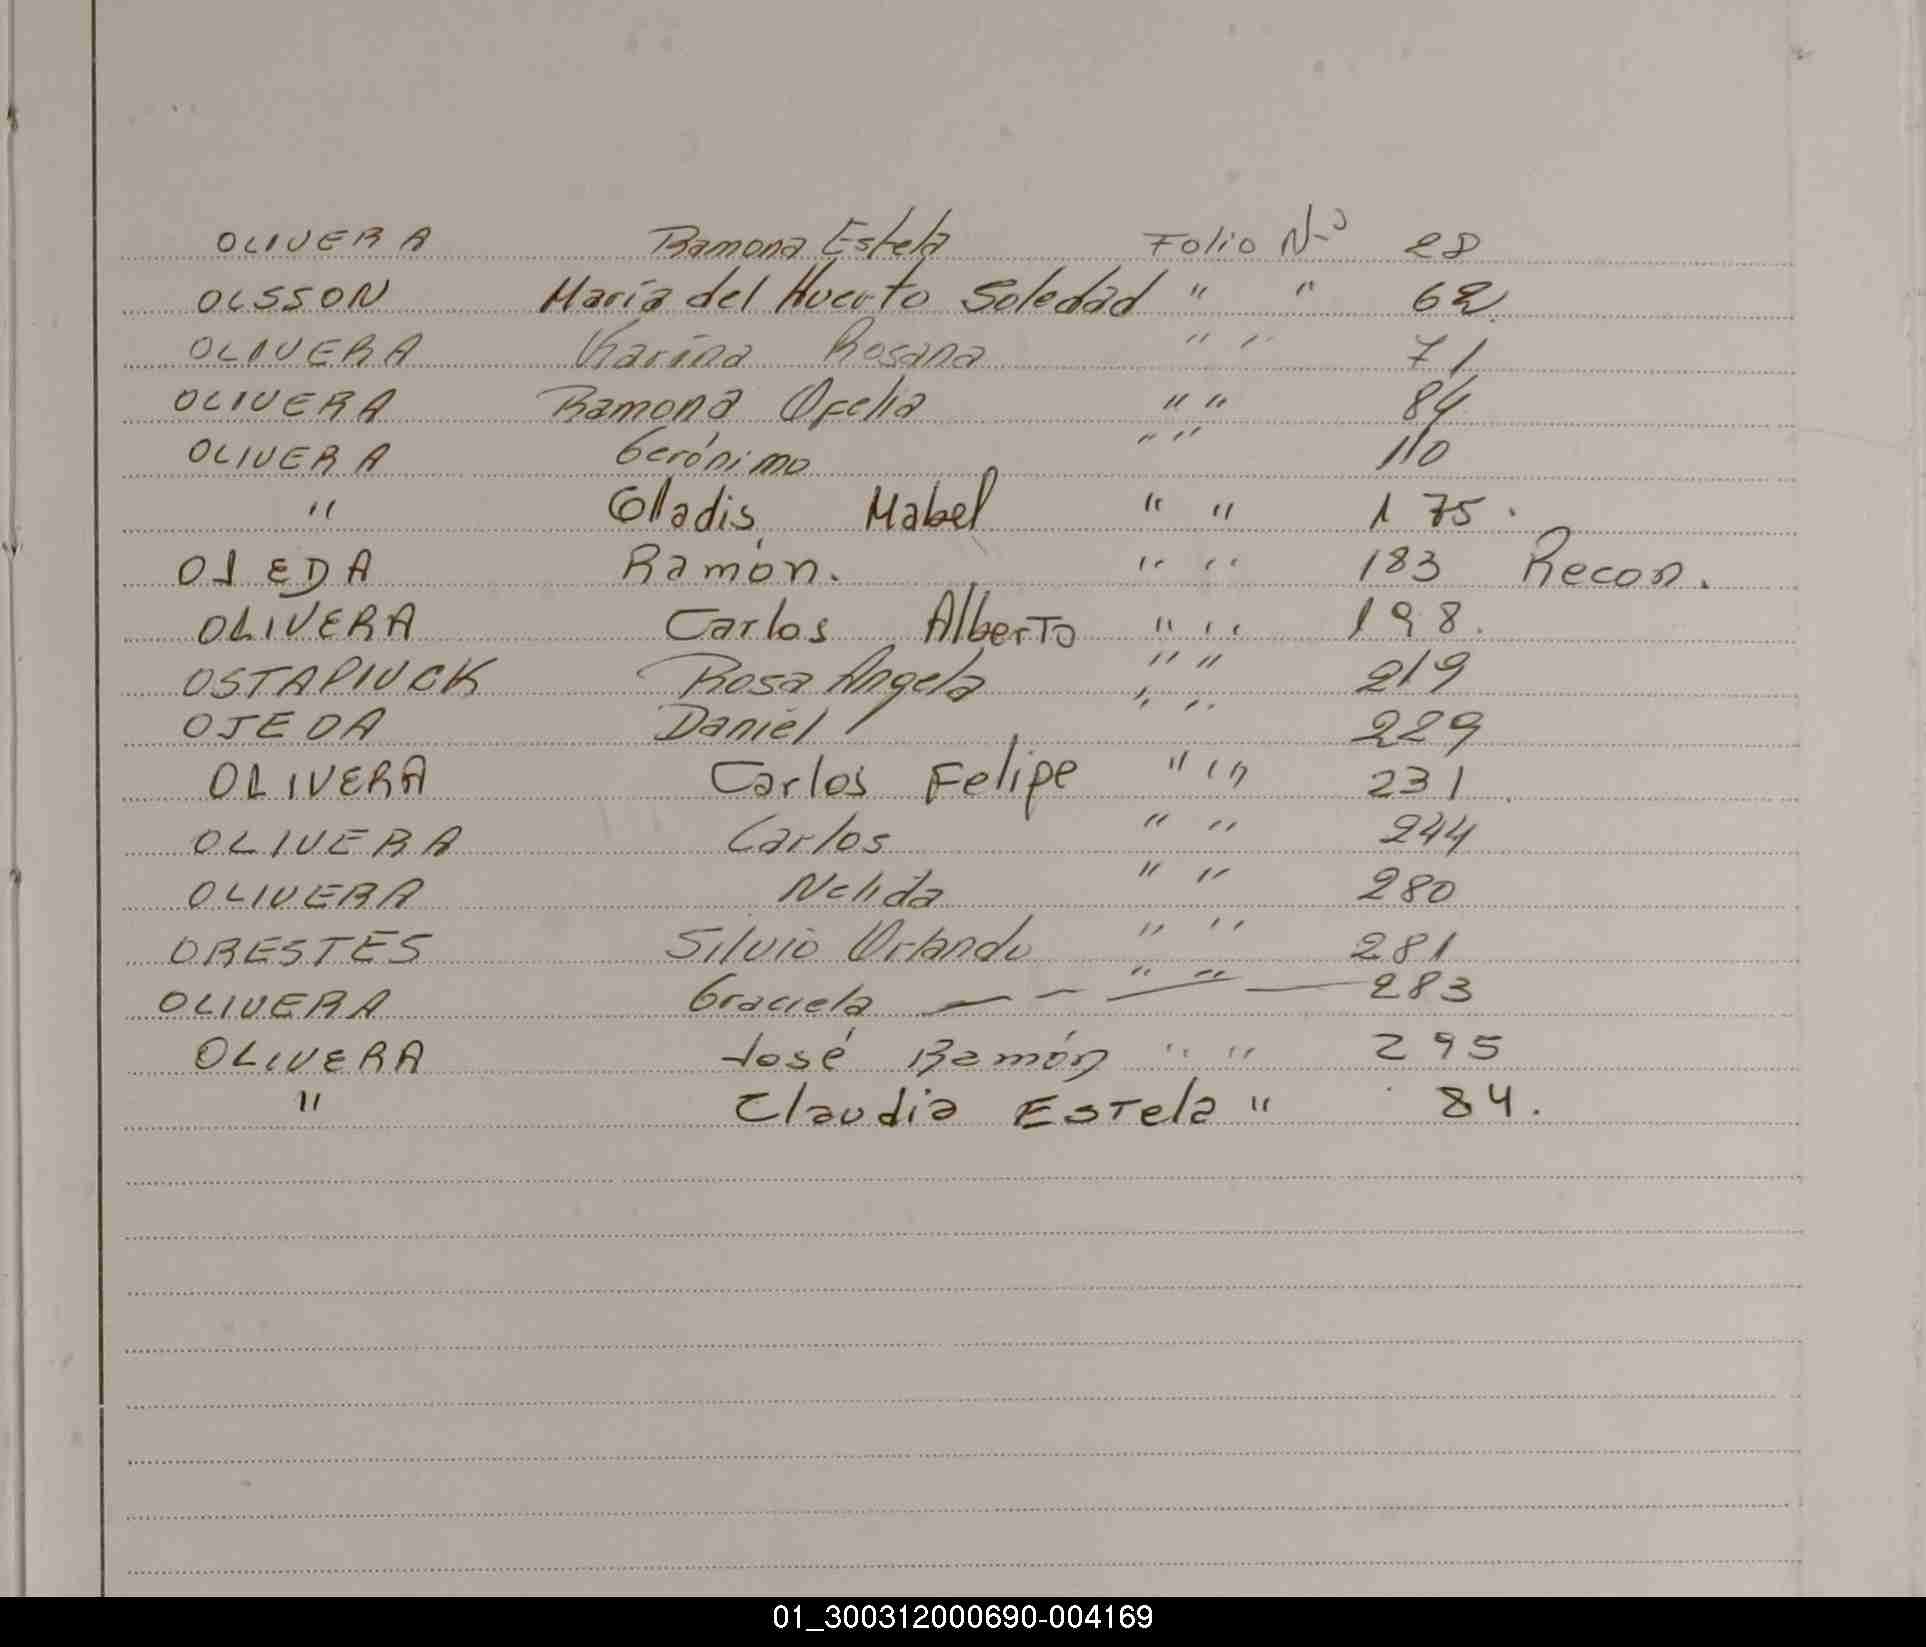 OLIVERA Ramona Estela Folio Nº 28
OLSSON María del Huerto Soledad " " 62
OLIVERA Karina Rosana " " 71
OLIVERA Ramona Ofelia " " 84
OLIVERA Gerónimo " " 110
" Gladis Mabel " " 175.
OJEDA Ramón. " " 183 Recon.
OLIVERA Carlos Alberto " " 198.
OSTAPIUCK Rosa Angela " " 219
OJEDA Daniel " " 229
OLIVERA Carlos Felipe " " 231
OLIVERA Carlos " " 244
OLIVERA Nelida " " 280
ORESTES Silvio Orlando " " 281
OLIVERA Graciela " " 283
OLIVERA José Ramón " " 295
" Claudia Estela " 84.
01_300312000690-004169